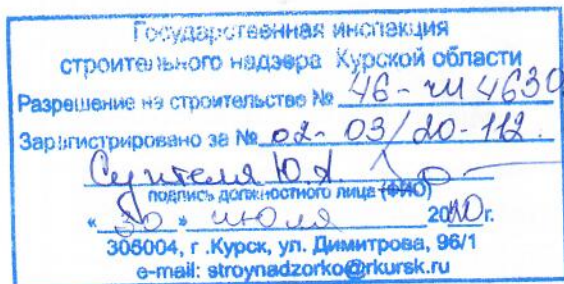 Государственная инспекция
строительного надзора Курской области
Разрешение на строительство № 46-чи 4630
Зарегистрировано за № 02-03/20-112.
Ю.А.
подпись должностного лица (ФИО)
«30» июля 2020г.
305004, г.Курск, ул. Димитрова, 96/1
e-mail: stroynadzorko@rkursk.ru